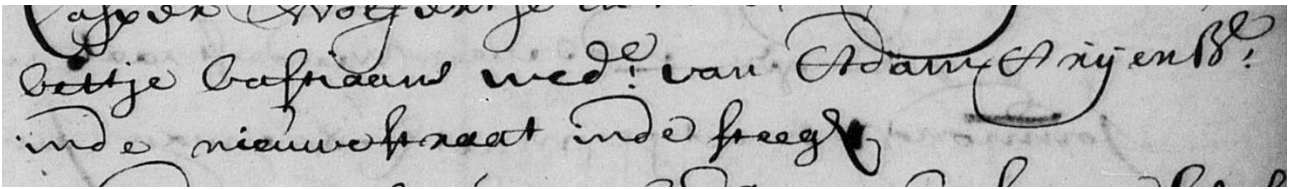 bettje bastiaans wed:e van Adam Arijens:
inde nieuwestraat inde steeg